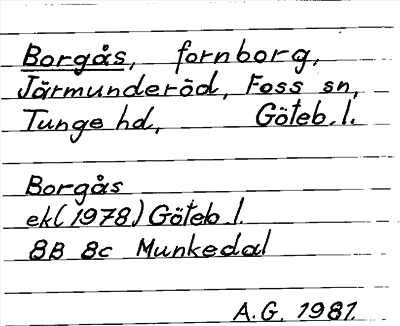 Borgås, fornborg,
Järmunderöd, Foss sn,
Tunge hd, Göteb. l.
Borgås
ek(1978) Göteb l.
8B 8c Munkedal
A.G. 1981.